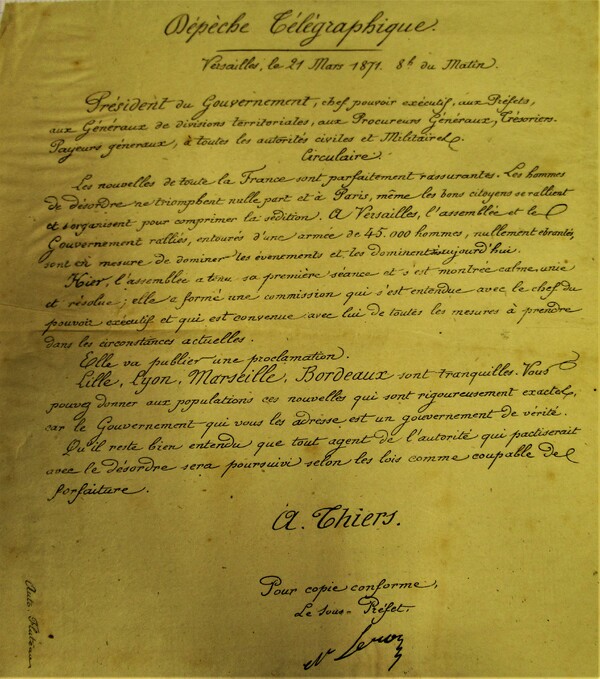 Dépèche Télégraphique.
Versailles, le 21 Mars 1871. 8h du Matin.
Président du Gouvernement, chef pouvoir exécutif, aux Préfets,
aux Généraux de divisions territoriales, aux Procureurs Généraux, Trésoriers-
Payeurs généraux, à toutes les autorités civiles et Militaires.
Circulaire
Les nouvelles de toute la France sont parfaitement rassurantes. Les hommes
de désordre ne triomphent nulle part et à Paris, même les bons citoyens se rallient
et s'organisent pour comprimer la sédition. A Versailles, l'assemblée et le
Gouvernement ralliés, entourés d'une armée de 45.000 hommes, nullement ébranlés,
sont en mesure de dominer les évènements et les dominent aujourd'hui.
Hier, l'assemblée a tenu sa première séance et s'est montrée calme, unie
et résolue; elle a formé une commission qui s'est entendue avec le chef du
pouvoir exécutif et qui est convenue avec lui de toutes les mesures à prendre
dans les circonstances actuelles.
Elle va publier une proclamation.
Lille, Lyon, Marseille, Bordeaux sont tranquilles. Vous
pouvez donner aux populations ces nouvelles qui sont rigoureusement exactes,
car le Gouvernement qui vous les adresse est un gouvernement de vérité.
Qu'il reste bien entendu que tout agent de l'autorité qui pactiserait
avec le désordre sera poursuivi selon les lois comme coupable de
forfaiture.
A. Thiers.
Pour copie conforme,
Le Sous-Préfet.